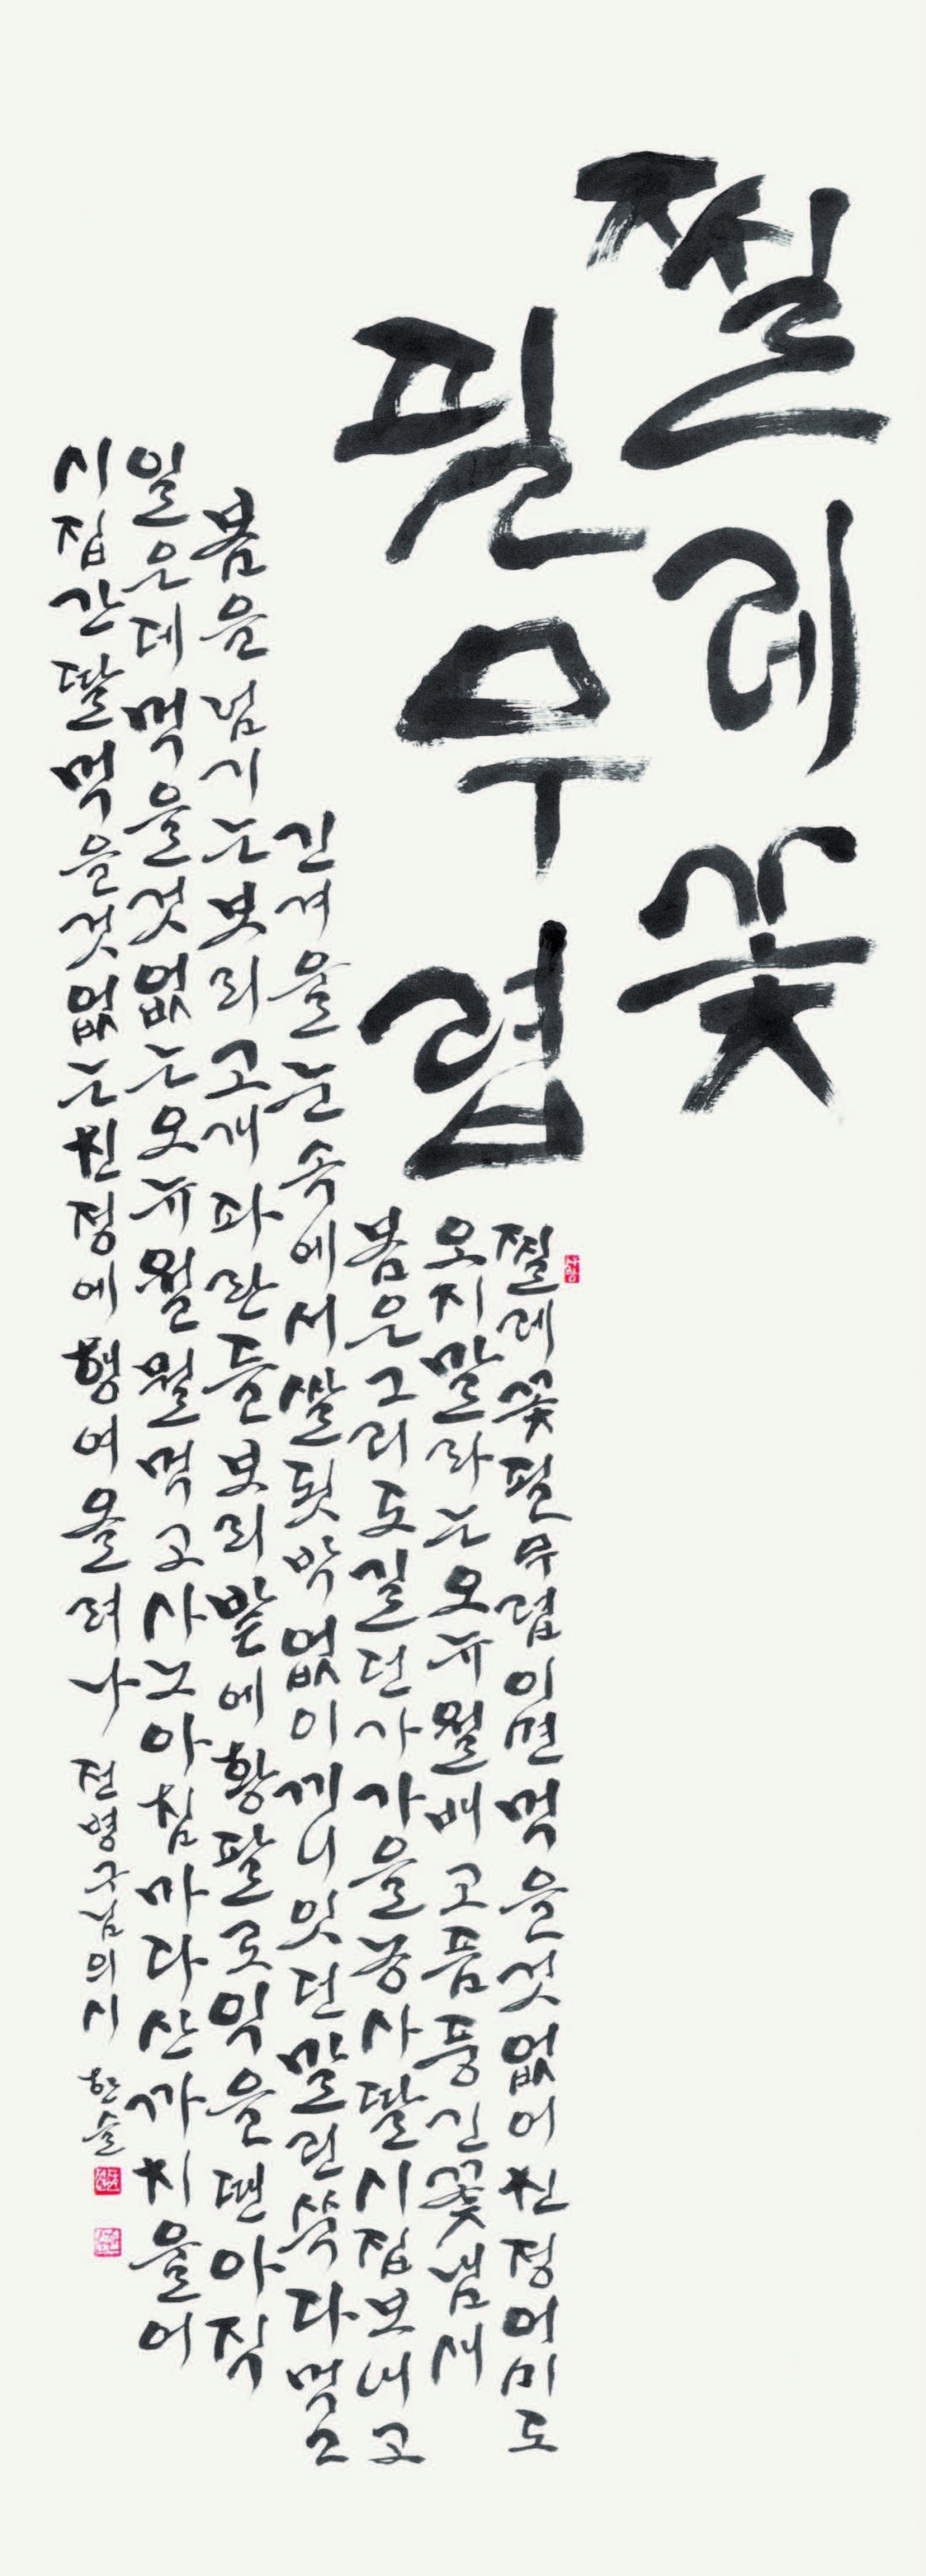 찔레꽃
필무렵
찔레꽃필무렵이면먹을것없어친정어미도
오지말라는오뉴월배고픔풍긴꽃냄새
봄은그리도길던가가을농사딸시집보내고
긴겨울눈속에서쌀됫박없이끼니잇던말린쑥다먹고
봄을넘기는보리고개파란들보리밭에황팔로익을땐아직
일은데먹을것없는오뉴월뭘먹고사노아침마다산까치울어
시집간딸먹을것없는친정에행여올려나 전병구님의시